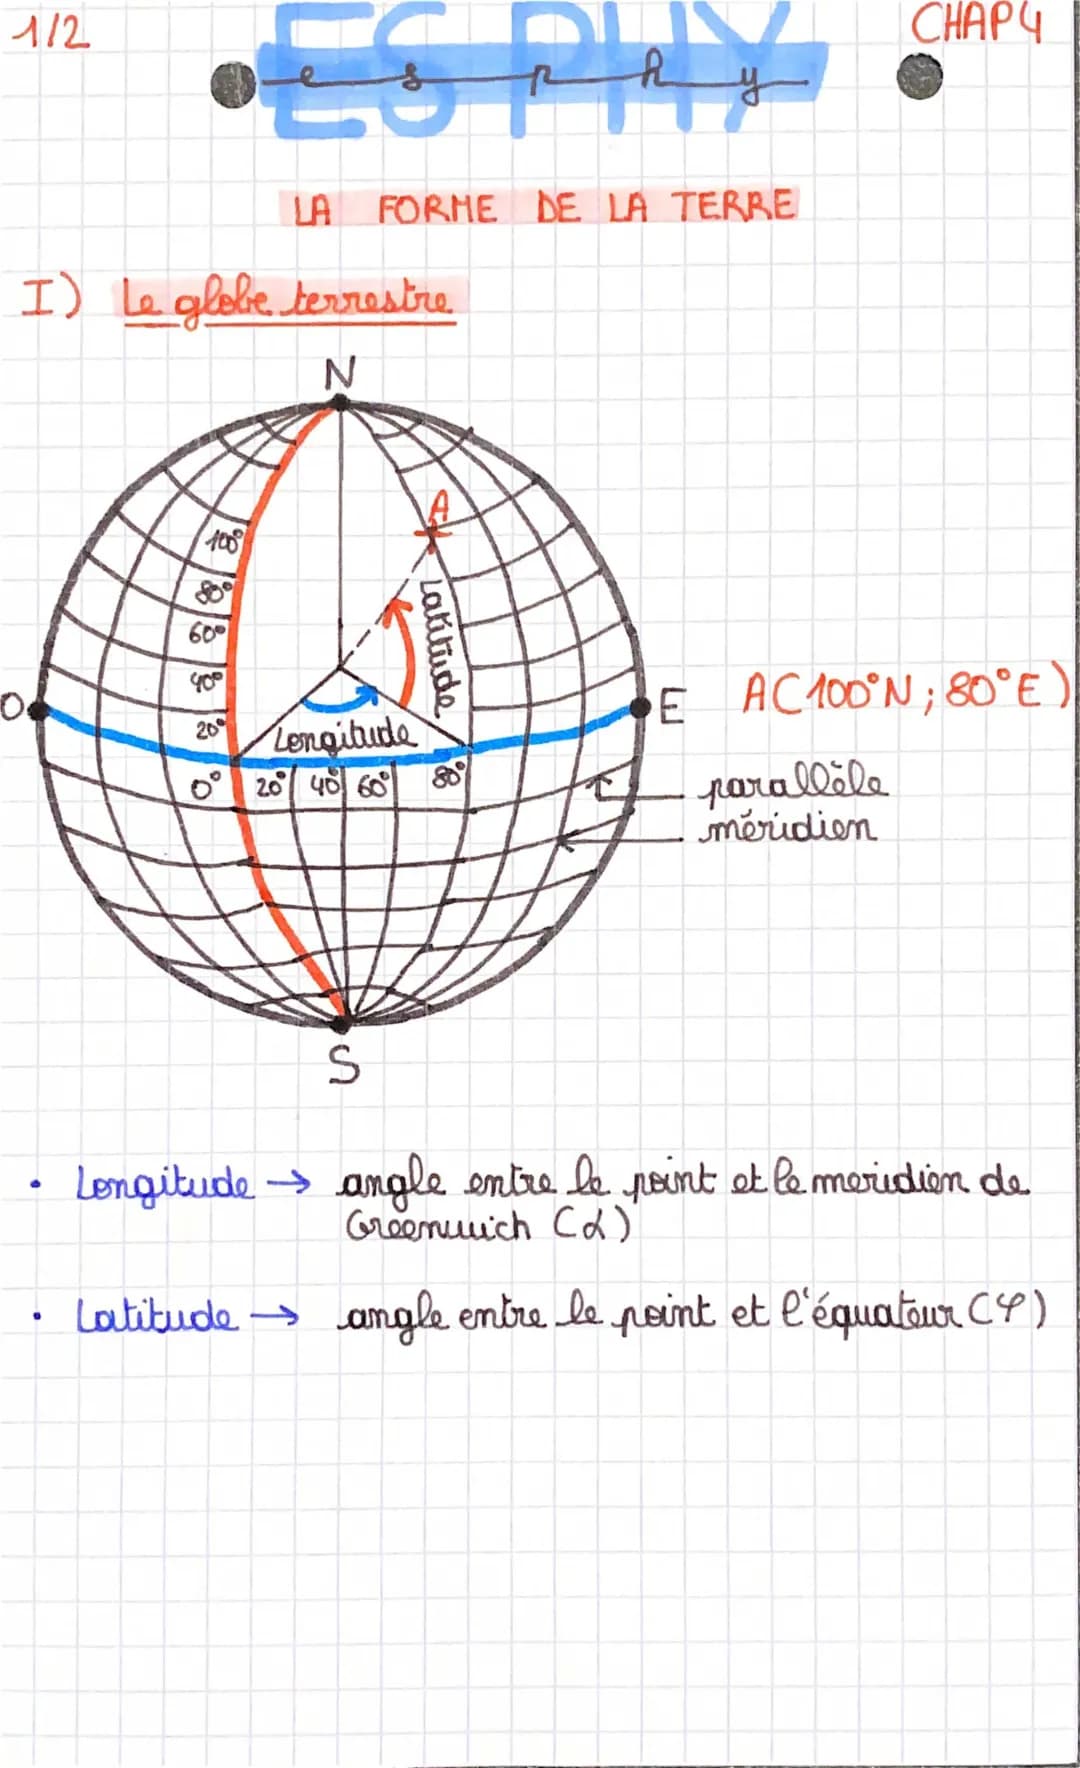 1/2
ES PHY
CHAP 4
e s p h y
LA FORME DE LA TERRE
I) Le globe terrestre
N
A
100°
80°
60°
40°
20°
Latitude
O
E
A(100°N ; 80°E)
Longitude
0° 20° 40° 60° 80°
parallèle
méridien
S
• Longitude → angle entre le point et le meridien de
Greenwich (α)
• Latitude → angle entre le point et l'équateur (φ)